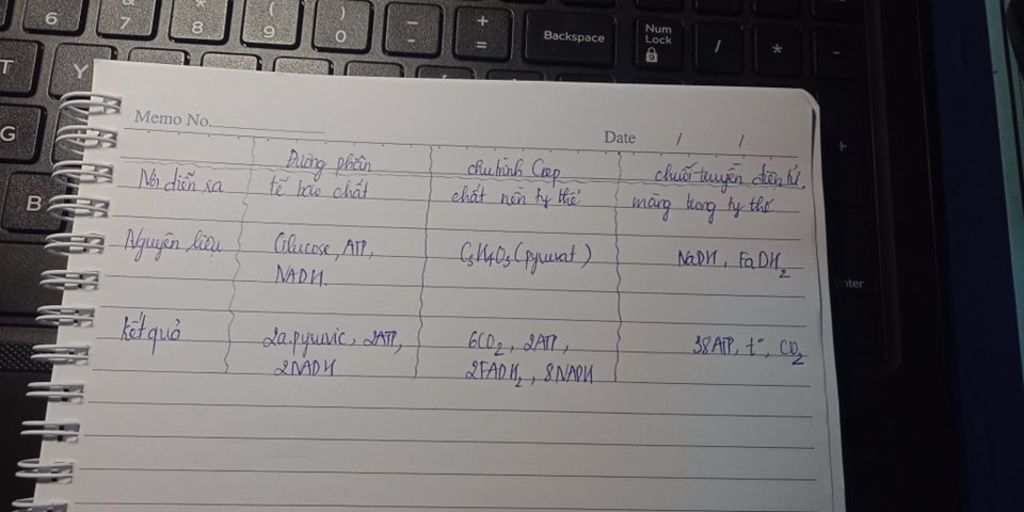 6 7 8 ( 9 ) 0 - + = Backspace Num Lock / * -
T Y
G
B
+
Enter
Memo No.
Date / /
Đường phân chu trình Crep chuỗi truyền điện tử
Nơi diễn ra tế bào chất chất nền ty thể màng trong ty thể
Nguyên liệu Glucose, ATP, C3H4O3 (pyruvat) NaDH, FaDH2
NADH.
Kết quả 2a.pyruvic, 2ATP, 6CO2, 2ATP, 38ATP, t°, CO2
2NADH 2FADH2, 8NADH